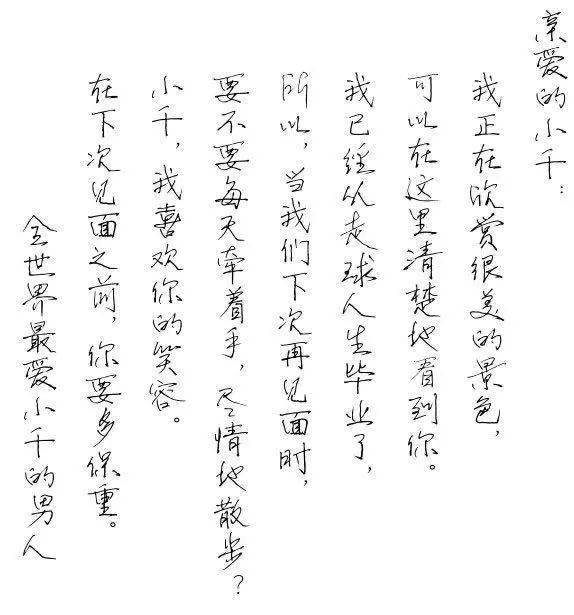 亲爱的小千：
我正在欣赏很美的景色，
可以在这里清楚地看到你。
我已经从走球人生毕业了，
所以，当我们下次再见面时，
要不要每天牵着手，尽情地散步？
小千，我喜欢你的笑容。
在下次见面之前，你要多保重。
全世界最爱小千的男人